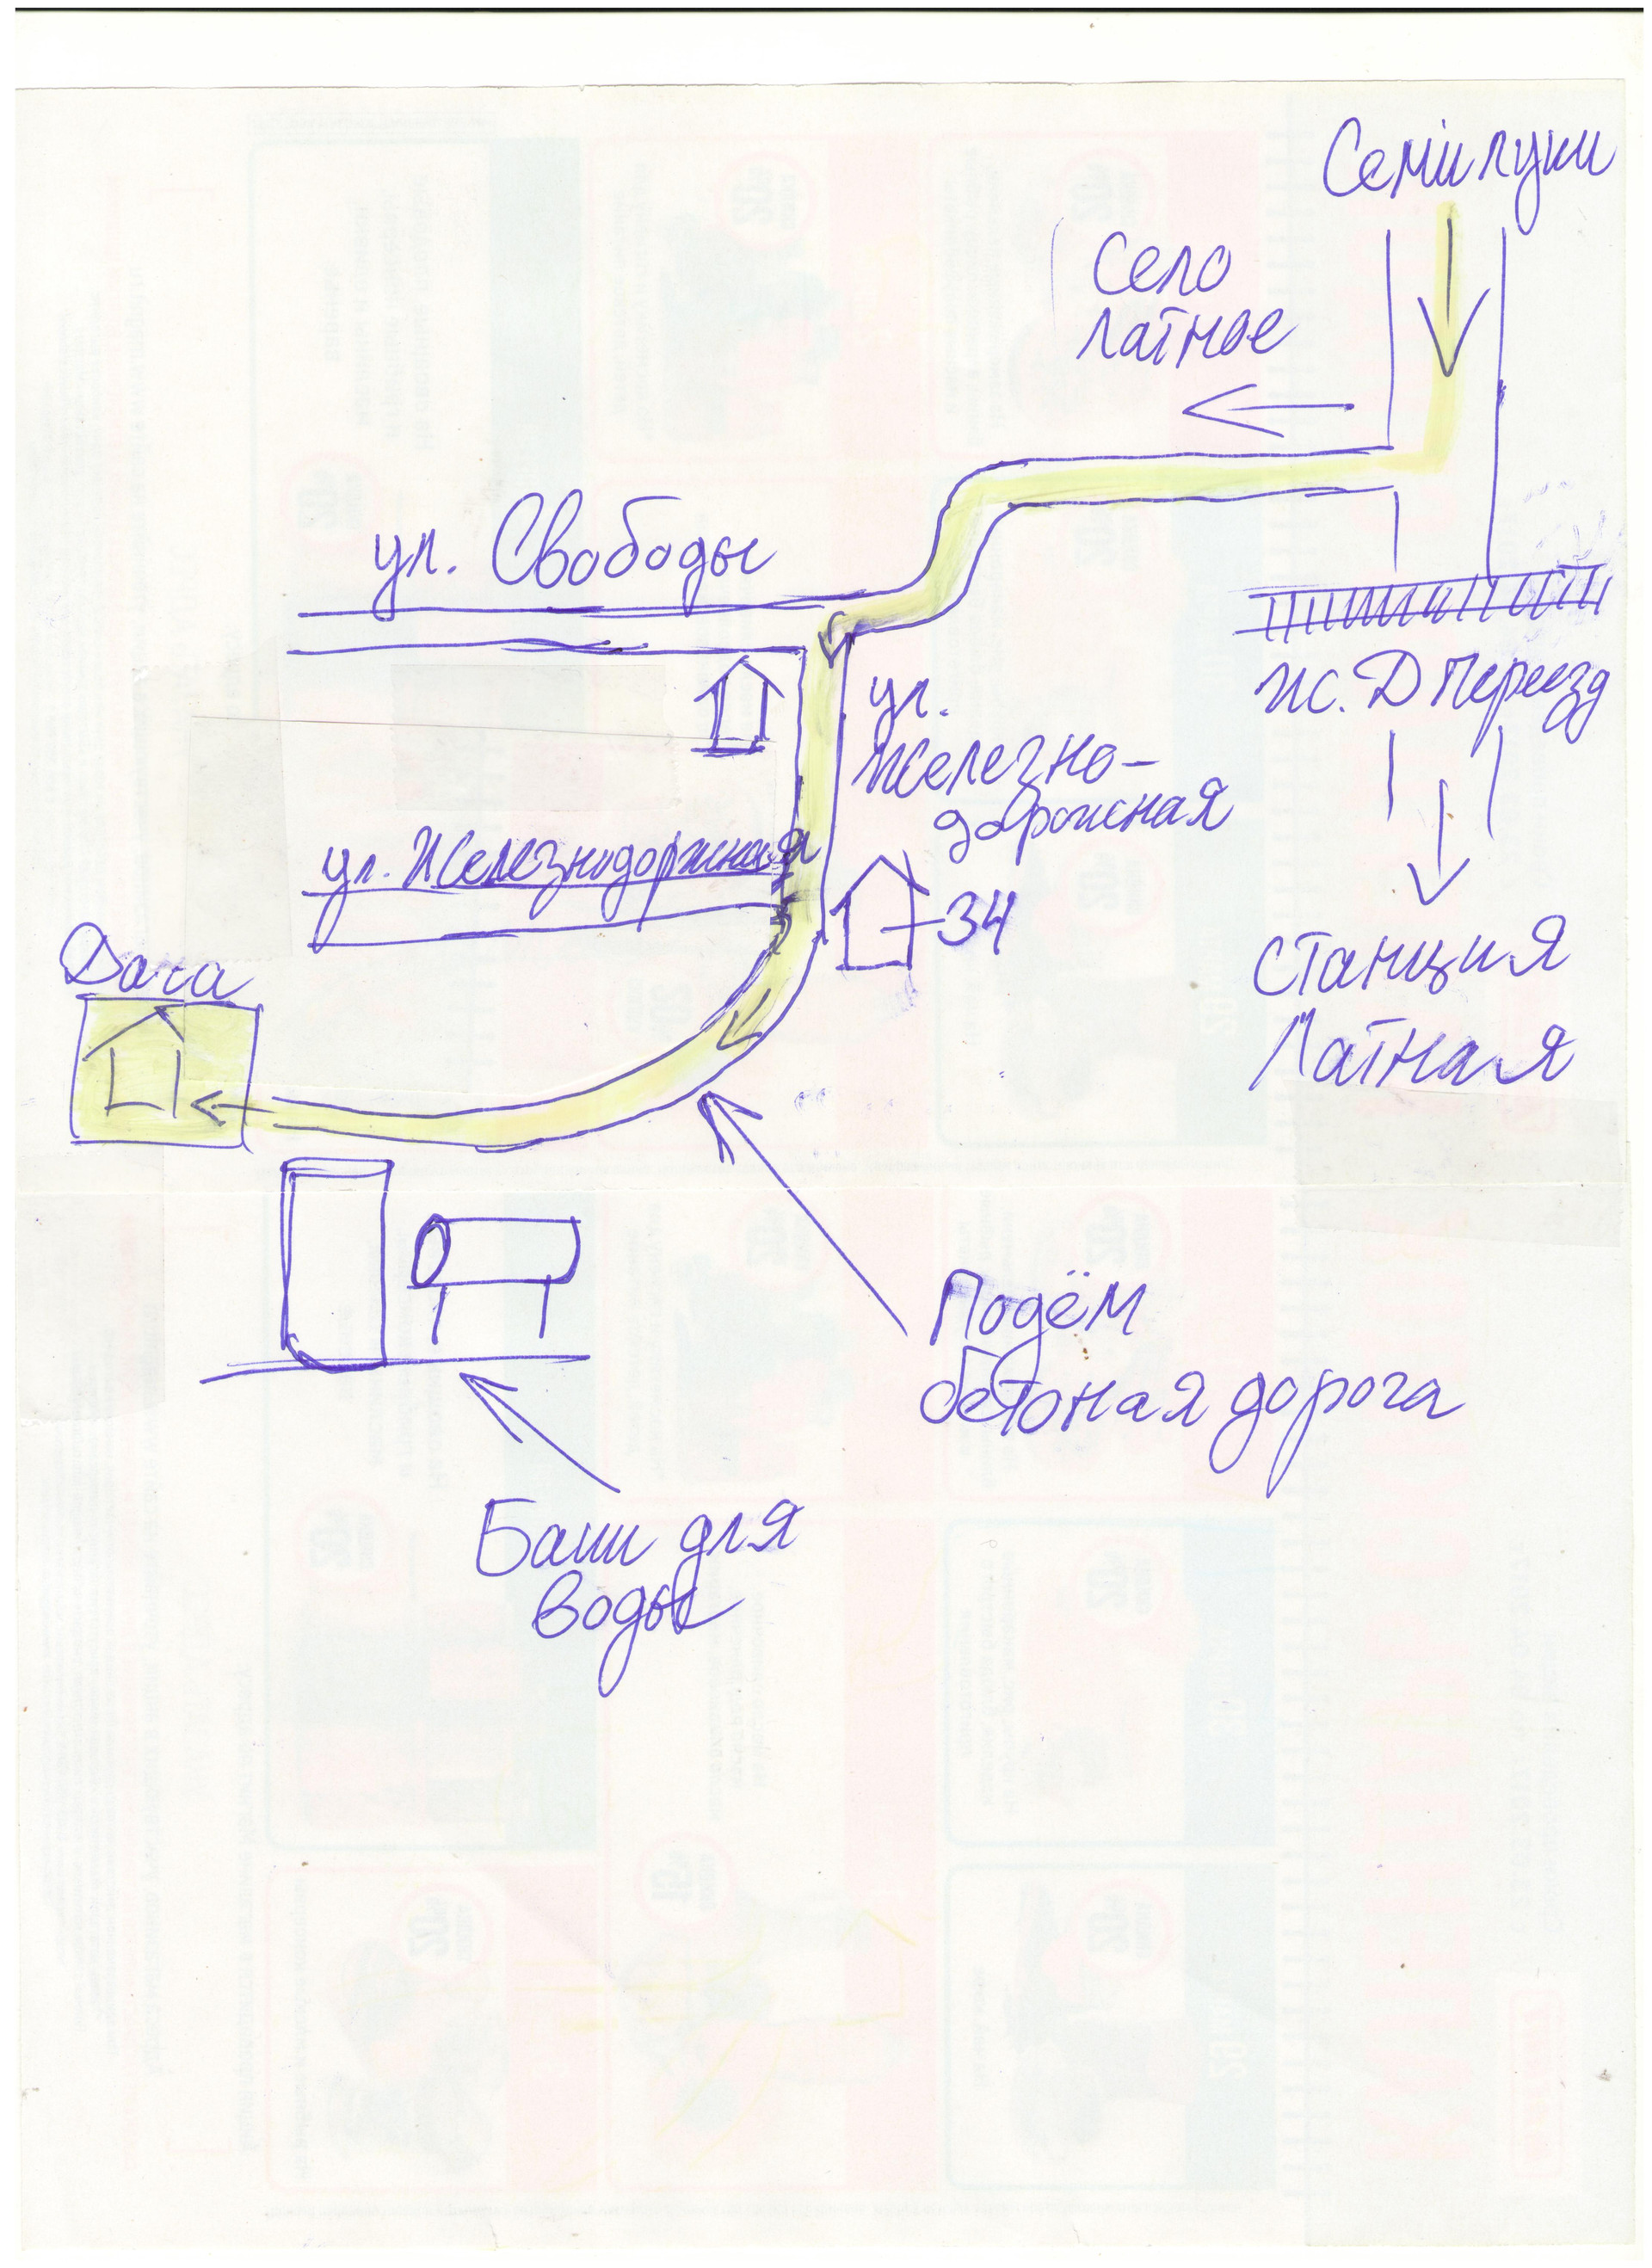 Семилуки
Село
Латное
ул. Свободы
ж. Д Переезд
ул.
Железно-
дорожная
ул. Железнодорожная
34
Дача
станция
Латная
Подём
бетоная дорога
Баки для
воды